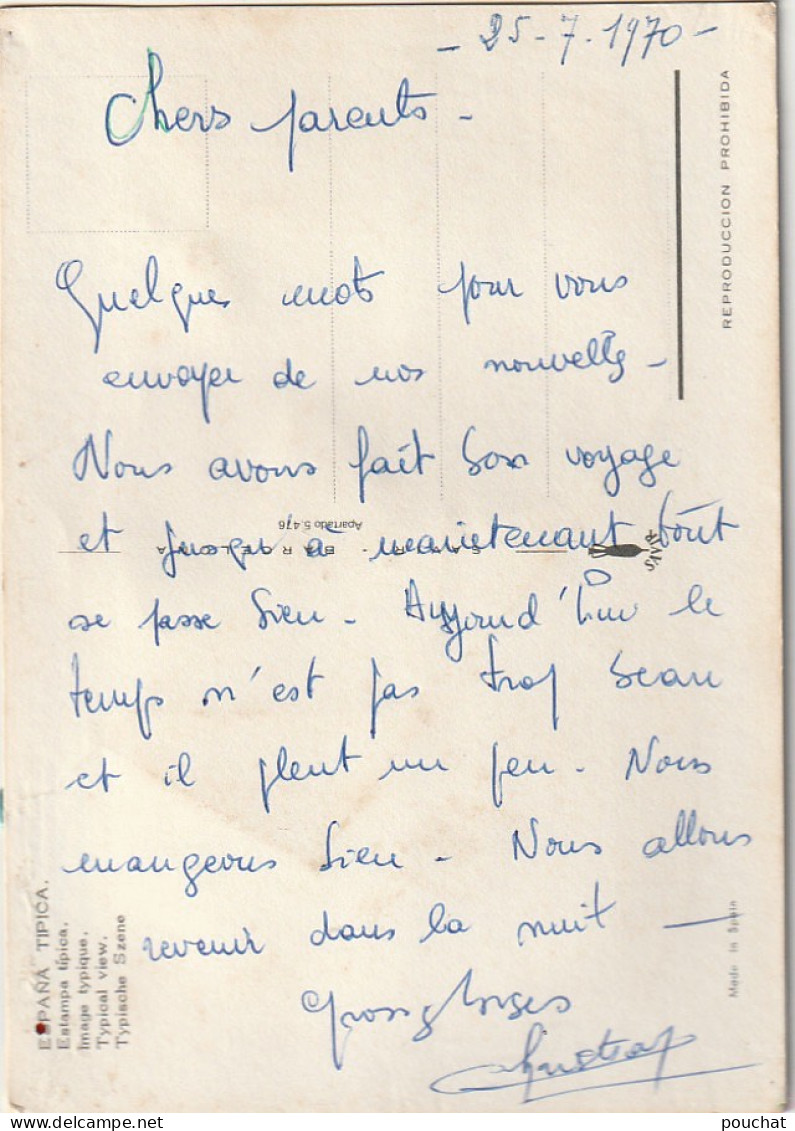 - 25-7-1970-
Chers parents -
Quelques mots pour vous
envoyer de nos nouvelles -
Nous avons fait bon voyage
et jusqu'à maintenant tout
se passe bien - Aujourd'hui le
temps n'est pas trop beau
et il pleut un peu - Nous
mangeons bien - Nous allons
revenir dans la nuit —
Gros baisers
REPRODUCCION PROHIBIDA
Apartado 5.476
BARCELONA
ESPAÑA TIPICA.
Estampa típica.
Image typique.
Typical view.
Typische Szene
Made in Spain
pouchat